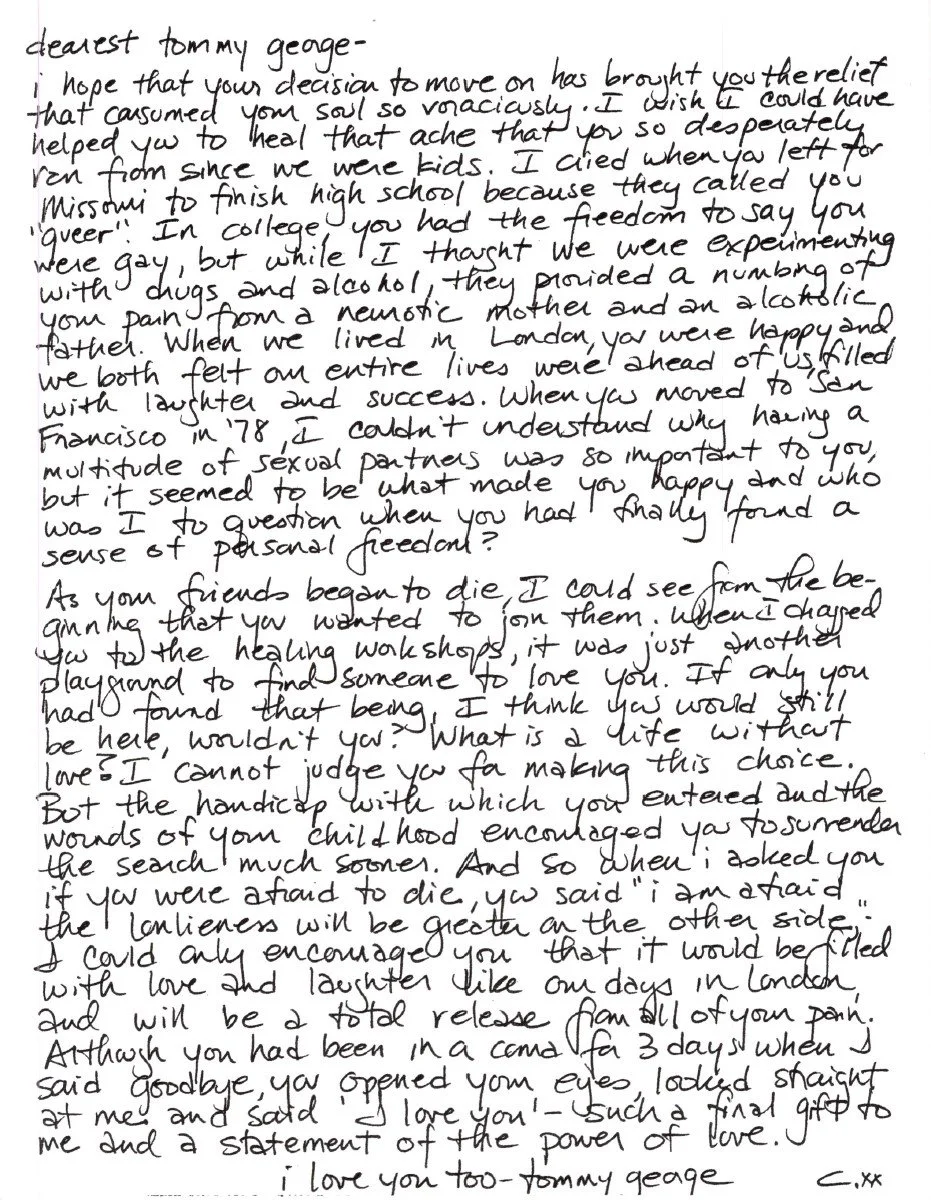 dearest tommy george-
i hope that your decision to move on has brought you the relief
that consumed your soul so voraciously. I wish I could have
helped you to heal that ache that you so desperately
ran from since we were kids. I cried when you left for
Missouri to finish high school because they called you
"queer". In college, you had the freedom to say you
were gay, but while I thought we were experimenting
with drugs and alcohol, they provided a numbing of
your pain from a neurotic mother and an alcoholic
father. When we lived in London, you were happy and
we both felt our entire lives were ahead of us, filled
with laughter and success. When you moved to San
Francisco in '78, I couldn't understand why having a
multitude of sexual partners was so important to you,
but it seemed to be what made you happy and who
was I to question when you had finally found a
sense of personal freedom?
As your friends began to die, I could see from the be-
ginning that you wanted to join them. When I dragged
you to the healing workshops, it was just another
playground to find someone to love you. If only you
had found that being, I think you would still
be here, wouldn't you? What is a life without
love? I cannot judge you for making this choice.
But the handicap with which you entered and the
wounds of your childhood encouraged you to surrender
the search much sooner. And so when i asked you
if you were afraid to die, you said "i am afraid
the lonlieness will be greater on the other side".
I could only encourage you that it would be filled
with love and laughter like our days in London,
and will be a total release from all of your pain.
Although you had been in a coma for 3 days when I
said goodbye, you opened your eyes, looked straight
at me and said 'I love you' - such a final gift to
me and a statement of the power of love.
i love you too - tommy george C.xx